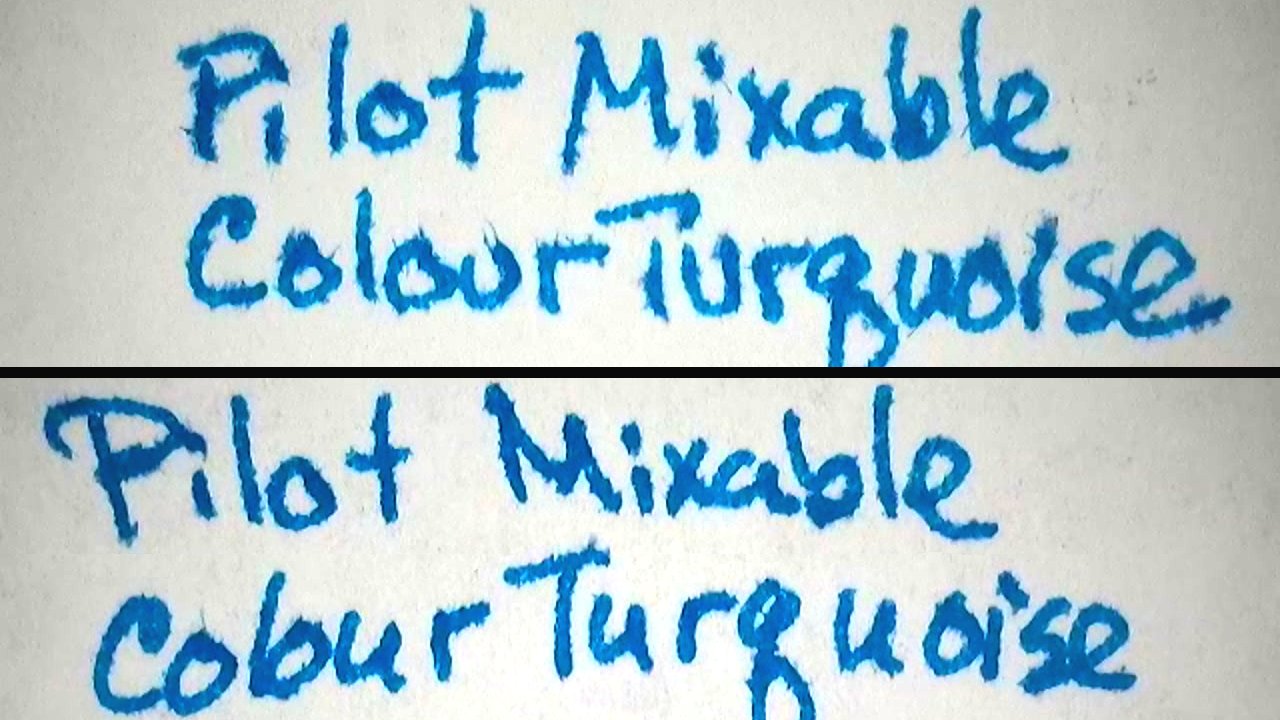 Pilot Mixable
Colour Turquoise
Pilot Mixable
Colour Turquoise